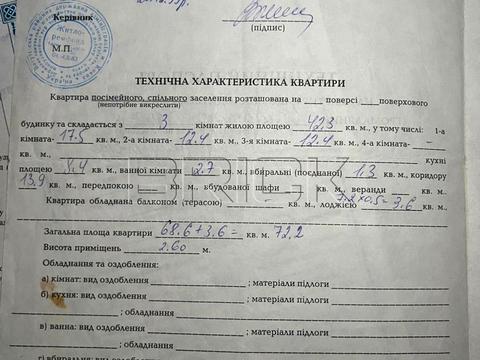 Керівник
М.П.
(підпис)
Житло-
ТЕХНІЧНА ХАРАКТЕРИСТИКА КВАРТИРИ
Квартира посімейного, спільного заселення розташована на ____ поверсі ____поверхового
(непотрібне викреслити)
будинку та складається з 3 кімнат жилою площею 42.3 кв. м., у тому числі: 1-а
кімната- 17.5 кв. м., 2-а кімната- 12.4 кв. м., 3-я кімната- 12.4 кв. м., 4-а кімната- –
кв. м., кухні
площею 8.4 кв. м., ванної кімнати 2.7 кв. м., вбиральні (поєднаної) 1.3 кв. м., коридору
13.9 кв. м., передпокою ____ кв. м., вбудованої шафи ____ кв. м., веранди ____ кв. м.
Квартира обладнана балконом (терасою) ____ кв. м., лоджією 7.2x0.5=3.6 кв. м.
Загальна площа квартири 68.6+3.6= кв. м. 72.2
Висота приміщень 2.60 м.
Обладнання та оздоблення:
а) кімнат: вид оздоблення ____ ; матеріали підлоги ____
б) кухні: вид оздоблення ____ ; матеріали підлоги ____
____ ; обладнання ____
в) ванна: вид оздоблення ____ ; матеріали підлоги ____
____ ; обладнання ____
г) вбиральня: вид оздоблення